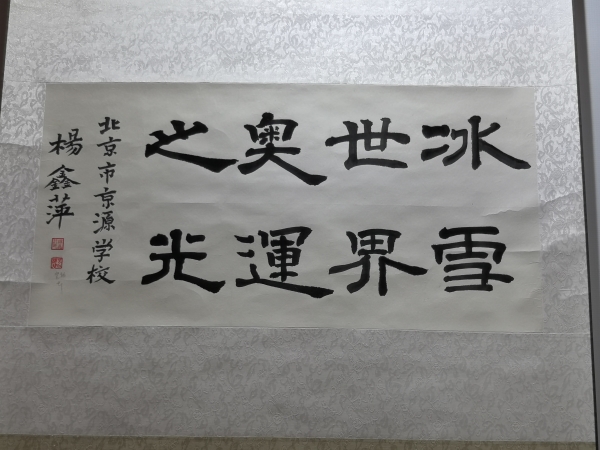 冰雪
世界
奥運
之光
北京市京源学校
楊鑫萍